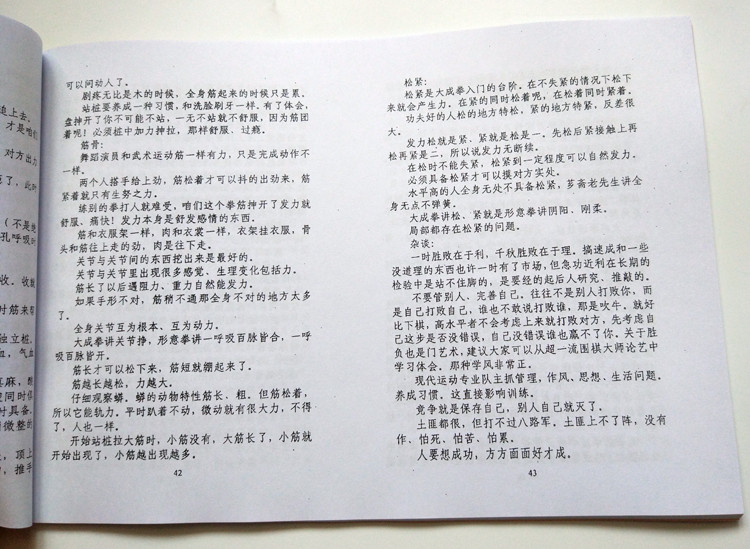 迫上去。
才是咱们
对方出力
(不是
孔呼吸
收。收
时筋来帮
独立桩，
血，气血
时具备，
微整的
，顶上
，推手
可以问动人了。
剧疼无比是木的时候，全身筋起来的时候只是累。
站桩要养成一种习惯，和洗脸刷牙一样，有了体会，
盘抻开了你不可能不站，一无不站就不舒服，因为筋团
着呢！必须桩中加力抻拉，那样舒服、过瘾。
筋骨：
舞蹈演员和武术运动筋一样有力，只是完成动作不
一样。
两个人搭手给上劲，筋松着才可以抖的出劲来，筋
紧着就只有生努之力。
练别的拳打人就难受，咱们这个拳筋抻开了发力就
舒服、痛快！发力本身是舒发感情的东西。
筋和衣服架一样，肉和衣裳一样，衣架挂衣服，骨
头和筋往上走的劲，肉是往下走。
关节与关节间的东西挖出来是最好的。
关节与关节里出现很多感觉、生理变化包括力。
筋长了以后遇阻力、重力自然能发力。
如果手形不对，筋稍不通那全身不对的地方太多
了。
全身关节互为根本、互为动力。
大成拳讲关节挣，形意拳讲一呼吸百脉皆合，一呼
吸百脉皆开。
筋长才可以松下来，筋短就绷起来了。
筋越长越松，力越大。
仔细观察蟒，蟒的动物特性筋长、粗。但筋松着，
所以它能轨力。平时趴着不动，微动就有很大力，不得
了，人也一样。
开始站桩拉大筋时，小筋没有，大筋长了，小筋就
开始出现了，小筋越出现越多。
42
松紧：
松紧是大成拳入门的台阶。在不失紧的情况下松下
来就会产生力。在紧的同时松着呢，在松着同时紧着。
功夫好的人松的地方特松，紧的地方特紧，反差很
大。
发力松就是紧、紧就是松是一。先松后紧接触上再
松再紧是二，所以说发力无断续。
在松时不能失紧，松紧到一定程度可以自然发力。
必须具备松紧才可以摸对方实处。
水平高的人全身无处不具备松紧，芗斋老先生讲全
身无点不弹簧。
大成拳讲松、紧就是形意拳讲阴阳、刚柔。
局部都存在松紧的问题。
杂谈：
一时胜败在于利，千秋胜败在于理。搞速成和一些
没道理的东西也许一时有了市场，但急功近利在长期的
检验中是站不住脚的，是要经的起后人研究、推敲的。
不要管别人、完善自己。往往不是别人打败你，而
是自己打败自己，谁也不敢说打败谁，那是吹牛。就好
比下棋，高水平者不会考虑上来就打败对方，先考虑自
己这步是否没错误，自己没错误谁也赢不了你。关于胜
负也是门艺术，建议大家可以从超一流围棋大师论艺中
学习体会。那种学风非常正。
现代运动专业队主抓管理，作风、思想、生活问题。
养成习惯。这直接影响训练。
竞争就是保存自己，别人自己就灭了。
土匪都很，但打不过八路军。土匪上不了阵，没有
作、怕死、怕苦、怕累。
人要想成功，方方面面好才成。
43